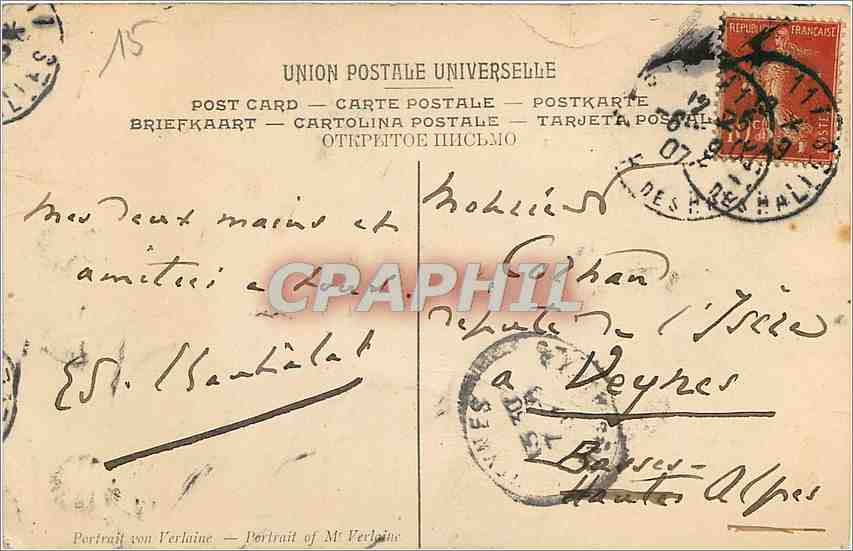 15
UNION POSTALE UNIVERSELLE
POST CARD — CARTE POSTALE — POSTKARTE
BRIEFKAART — CARTOLINA POSTALE — TARJETA POSTAL
ОТКРЫТОЕ ПИСЬМО
REPUBLIQUE FRANÇAISE
10
POSTES
DES HALLES
Mes deux mains et
amitiés à tous.
Ed.
Monsieur
député de l'Isère
à Veynes
Basses-
Hautes Alpes
VEYNES
CPAPHIL
Portrait von Verlaine — Portrait of Mr Verlaine